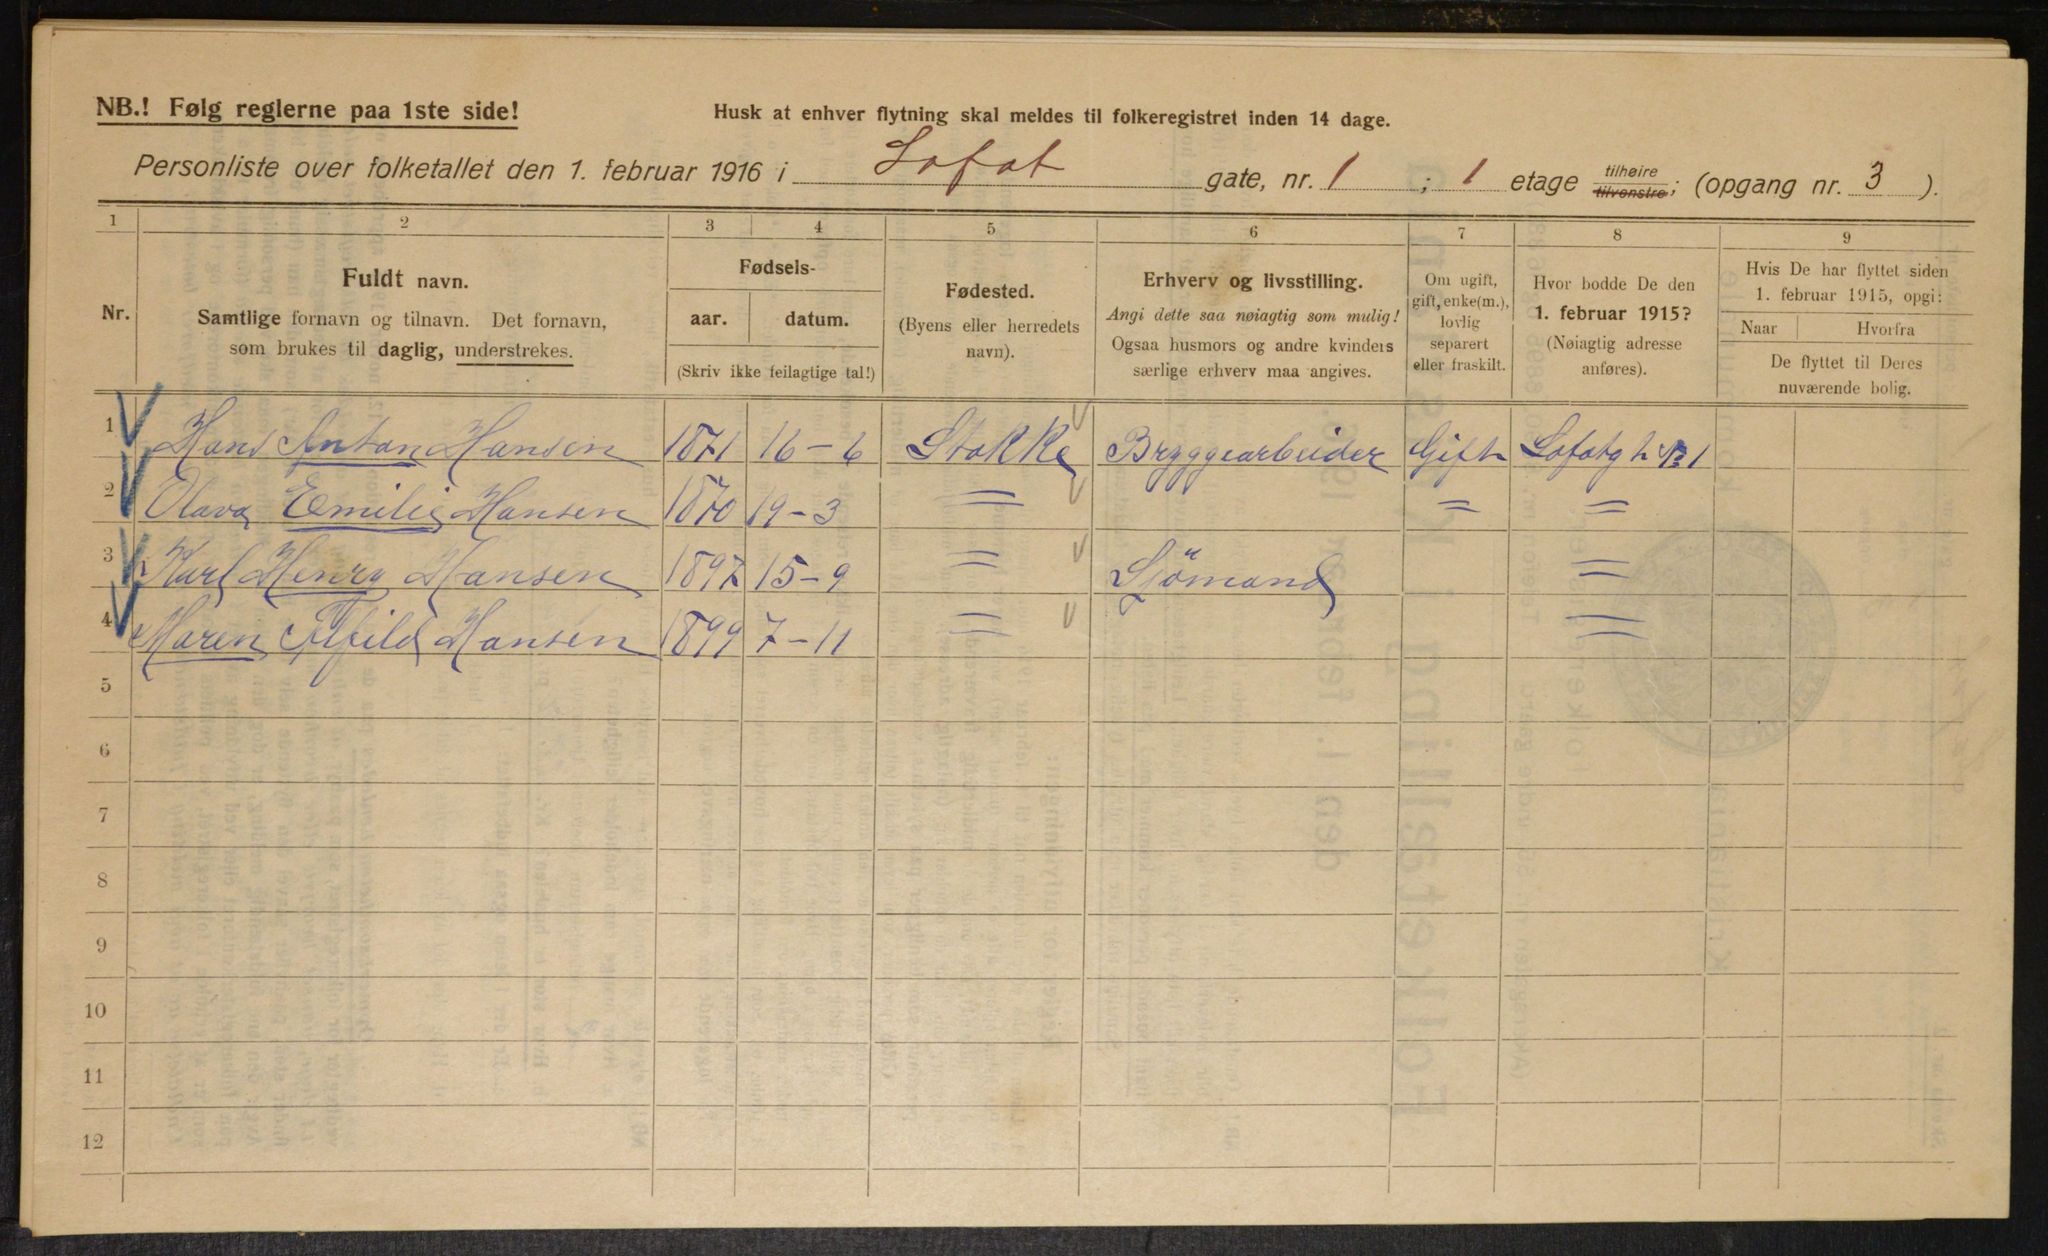 NB.! Følg reglerne paa 1ste side!
Husk at enhver flytning skal meldes til folkeregistret inden 14 dage.
Personliste over folketallet den 1. februar 1916 i Lofot gate, nr. 1 ; 1 etage tilhøire tilvenstre; (opgang nr. 3 ).
1 2 3 4 5 6 7 8 9
Nr.
Fuldt navn.
Samtlige fornavn og tilnavn. Det fornavn,
som brukes til daglig, understrekes.
Fødsels-
aar. datum.
(Skriv ikke feilagtige tal!)
Fødested.
(Byens eller herredets
navn).
Erhverv og livsstilling.
Angi dette saa nøiagtig som mulig!
Ogsaa husmors og andre kvinders
særlige erhverv maa angives.
Om ugift,
gift, enke(m.),
lovlig
separert
eller fraskilt.
Hvor bodde De den
1. februar 1915?
(Nøiagtig adresse
anføres).
Hvis De har flyttet siden
1. februar 1915, opgi:
Naar Hvorfra
De flyttet til Deres
nuværende bolig.
1 Hans Anton Hansen 1871 16–6 Stokke Bryggearbeider Gift Lofotgt No 1
2 Olava Emilie Hansen 1870 19–3 = = =
3 Karl Henry Hansen 1897 15–9 = Sjömand =
4 Maren Alfild Hansen 1899 7–11 = =
5
6
7
8
9
10
11
12